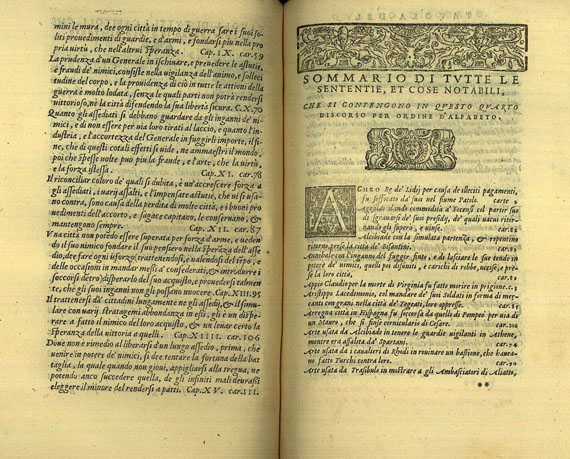 mini le mura, dee ogni città in tempo di guerra fare i suoi soli
ti prouedimenti di guardie, e d'armi, e fondarsi piu nella pro
pria virtù, che nell'altrui speranza. Cap. IX. car. 59
La prudenza d'un Generale in ischiuare, e preuedere le astutie,
e fraudi de' nimici, consiste nella vigilanza dell'animo, e solleci
tudine del corpo, e la prouidenza di ciò in tutte le attioni della
guerra è molto lodata, senza le quali parti non potrà rendersi
vittorioso, nè la città difendendo la sua libertà sicura. C. X. 70
Quanto gli assediati si debbano guardare da gli inganni de' ni-
mici, e di non essere per via loro tirati al laccio, e quanto l'in-
dustria, e l'accortezza del Generale in fuggirli importe, il fi-
ne, che di questi cotali effetti si vide, ne ammaestri il mondo,
poi che spesse volte può piu la fraude, e l'arte, che la virtù,
e la forza istessa.
Cap. XI. car. 78
Il riconciliar coloro de' quali si dubita, è un'accrescere forza a
gli assediati, i varij assalti, e l'impensate astutie, che vi si usa-
no contra, sono causa della perdita di molte città, e i buoni pro
uedimenti dell'accorto, e sagace capitano, le conseruano, &
mantengono sempre. Cap. XII. car. 87
Vna città non potendo essere superata per forza d'arme, e ueden-
do il suo nimico fondare il suo pensiero nella speranza dell'asse
dio, dee fare ogni isforzo, trattenendosi, e ualendosi del tempo, e
delle occasioni in mandar messi a' confederati, & introdurre i
soccorsi detro) disperarlo del suo acquisto, e prouedersi talmen
te, che gli suoi inganni non gli possano nuocere. Cap. XIII. 95
Il trattenersi da' cittadini lungamente ne gli assedij, & dissimu-
lare con varij stratagemi abbondanza in essi, gli è un dispe-
rare a fatto il nimico del loro acquisto, & un leuar certo la
speranza della vittoria a quelli. Cap. XIIII. car. 106
Doue non è rimedio al liberarsi da un lungo assedio, prima, che
uenire in potere de' nimici, si dee tentare la fortuna della bat
taglia, la quale quando non gioui, appigliarsi alla tregua, ne
potendo anco succedere quella, de gli infiniti mali deurassi
eleggere il minore del rendersi a patti. Cap. XV. car. 111.
SOMMARIO DI TVTTE LE
SENTENTIE, ET COSE NOTABILI,
CHE SI CONTENGONO IN QVESTO QVARTO
DISCORSO PER ORDINE D'ALFABETO.
ACHEO Re de' Lidij per causa de illeciti pagamenti,
fu soffocato da' suoi nel fiume Patolo. carte
car.
Alcibiade con la simulata partenza, & repentino
ritorno, prese la città de' Bisantini.
Annibale con l'inganno del fuggir finto, e di lasciare le sue tende in
potere de' nimici, quelli poi disuniti, e carichi di robbe, uccise, e pre-
se la loro città. car.
Appio Claudio per la morte di Virginia fu fatto morire in prigione. c.
Aristippo Lacedemone, col mandare de' suoi soldati in forma di mer-
canti con grani nella città de' Tegeati, loro oppresse. car.
Arregua città in Hispagna fu soccorsa da quelli di Pompei per via di
un Stauro, che si finse cornicolario di Cesare. car.
Arte usata da Alcibiade in tenere le guardie vigilanti in Athene,
mentre era assalita da' Spartani. car.
Arte usata da i caualieri di Rhodi in rouinare un bastione, che haueua-
no fatto Turchi contra loro. car.
Arte usata da Trasibulo in mostrare a gli Ambasciatori di Aliatte,
**